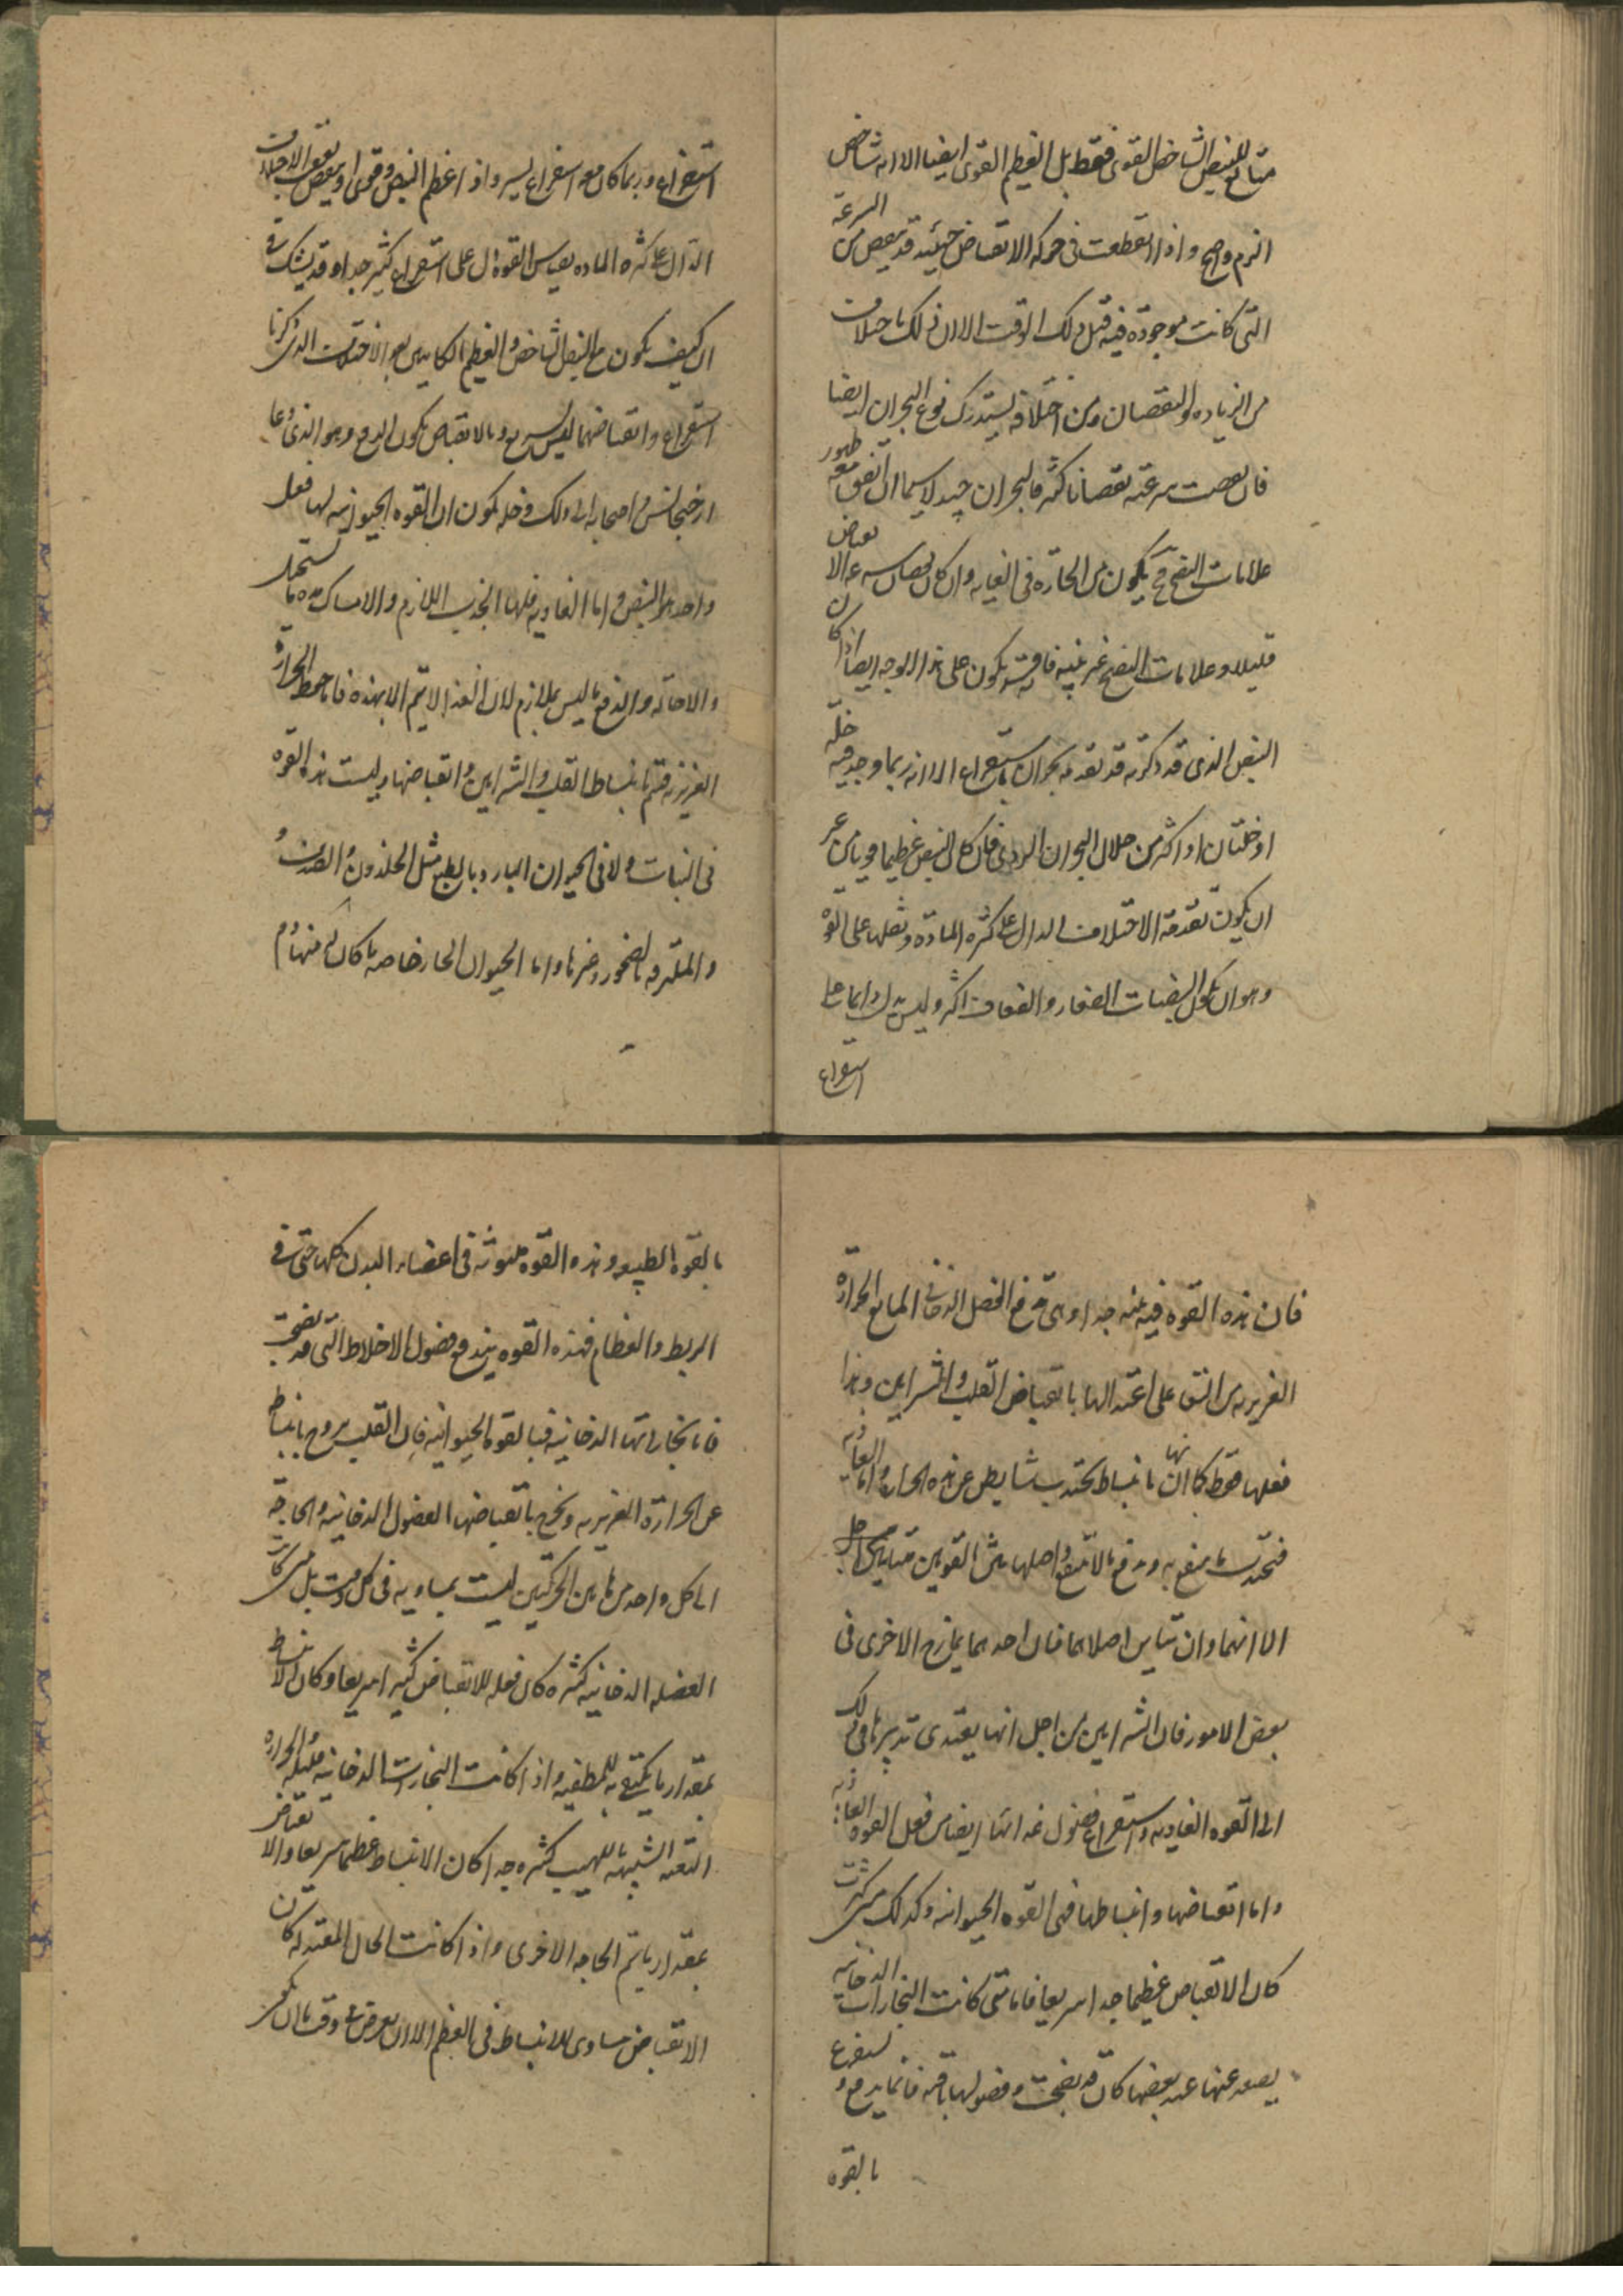 للنبض الشاخص القوى فقط بل العظيم القوى ايضا الا انه شاخص
الزم واصح و اذا انقطعت فى حركه الانقباض حينئذ قد ينقص من السرعة
التى كانت موجوده فيه قبل ذلك الوقت الا ان ذلك باختلاف
من الزياده والنقصان ومن اختلافه يستدرك نوع البحران ايضا
فان نقصت سرعته نقصانا كثيرا فالبحران جيد لا سيما ان اتفق معه ظهور
علامات النضج يكون من الحاره فى الغايه وان كان نقصان سرعه الانقباض
قليلا وعلامات النضج غير بينه يكون على هذا الوجه ايضا اذا كان
النبض الذى قد ذكرته قد تقدمه بحران باستفراغ الا انه ربما وجد فيه خلة
او خلتان او اكثر من خلال البحران الردى فان كان النبض عظيما قويا من غير
ان يكون تقدمة الاختلاف الدال على كثره المادة وثقلها على القوة
وهو ان يكون النبضات الصغار والضعاف اكثر وليس يدل دائما على
استفراغ
استفراغ وربما كان معه استفراغ يسير واذا عظم النبض وقوى او نقص بعض الاختلاف
الدال على كثره الماده بقياس القوة دل على استفراغ كثير جدا وقد يشك فى
ان كيف يكون مع النبض الشاخص والعظيم الاختلاف الذى ذكرنا
استفراغ وانقباضهما ليس بسريع وبالانقباض يكون الدفع وهو الذى دعا
ارخيجانس واصحابه الى ذلك وحله يكون ان القوه الحيوانيه لها فعل
واحد هو النبض واما الغاديه فلها الجذب اللازم والامساك مده ما تستحيل
والاحاله والدفع ما ليس بملازم لان الغذا لا يتم الا بهذه فاما حفظ الحرارة
الغريزيه فيتم بانبساط القلب والشرايين وانقباضها وليست هذه القوه
فى النبات ولا فى الحيوان البارد بالطبع مثل الحلزون والصدف و
والملتزقه بالصخور وغيرها واما الحيوان الحار خاصه ما كان منها دم
فان هذه القوه فيه بينه جدا وهى تدفع الفضل الدخانى المانع الحرارة
الغريزيه من البقا على اعتدالها بانقباض القلب والشرايين وهذا
فعلها فقط كما انها بانبساط تجتذب عن هذه الحرارة واما الغاذيه
فتجتذب ما ينتفع به وتدفع ما لا ينتفع واصلها بين القوتين متباين
الا انهما وان تباين اصلاهما فان احدهما يمازج الاخرى فى
بعض الامور فان الشرايين من اجل انها يغتذى تدبيرها فى ذلك
الى القوه الغاديه واستفراغ فضول غذائها ايضا من فعل القوه الغاذيه
واما انقباضها وانبساطها فمن القوه الحيوانيه وكذلك متى كثرت
كان الانقباض عظيما جدا سريعا فاما متى كانت البخارات الدخانيه
يصعد عنها عند بعضها كان قد نضجت وفضولها باقيه فانما يدفع و يستفرغ
بالقوه
بالقوه الطبيعيه وهذه القوه مبثوثه فى اعضاء البدن كلها حتى فى
الربط والعظام فبهذه القوه يندفع فضول الاخلاط التى قد نضجت
فاما بخاراتها الدخانيه فبالقوة الحيوانيه فان القلب يروح بانبساط
عن الحرارة الغريزيه ويخرج بانقباضها الفضول الدخانيه والحاجة
الى كل واحد من هاتين الحركتين ليست بمساويه فى كل وقت بل متى كانت
الفضله الدخانيه كثيره كان فعله للانقباض كثيرا سريعا وكان الانبساط
بمقدار ما يكتفى به للتطفيه واذا كانت البخارات الدخانيه قليله والحراره
الشبيهه باللهيب كثيره جدا كان الانبساط عظيما سريعا والانقباض
بمقدار ما يتم الحاجه الاخرى واذا كانت الحال المعتدله كان
الانقباض مساوى للانبساط فى العظم الا ان يعرض وقت ما ان يكون